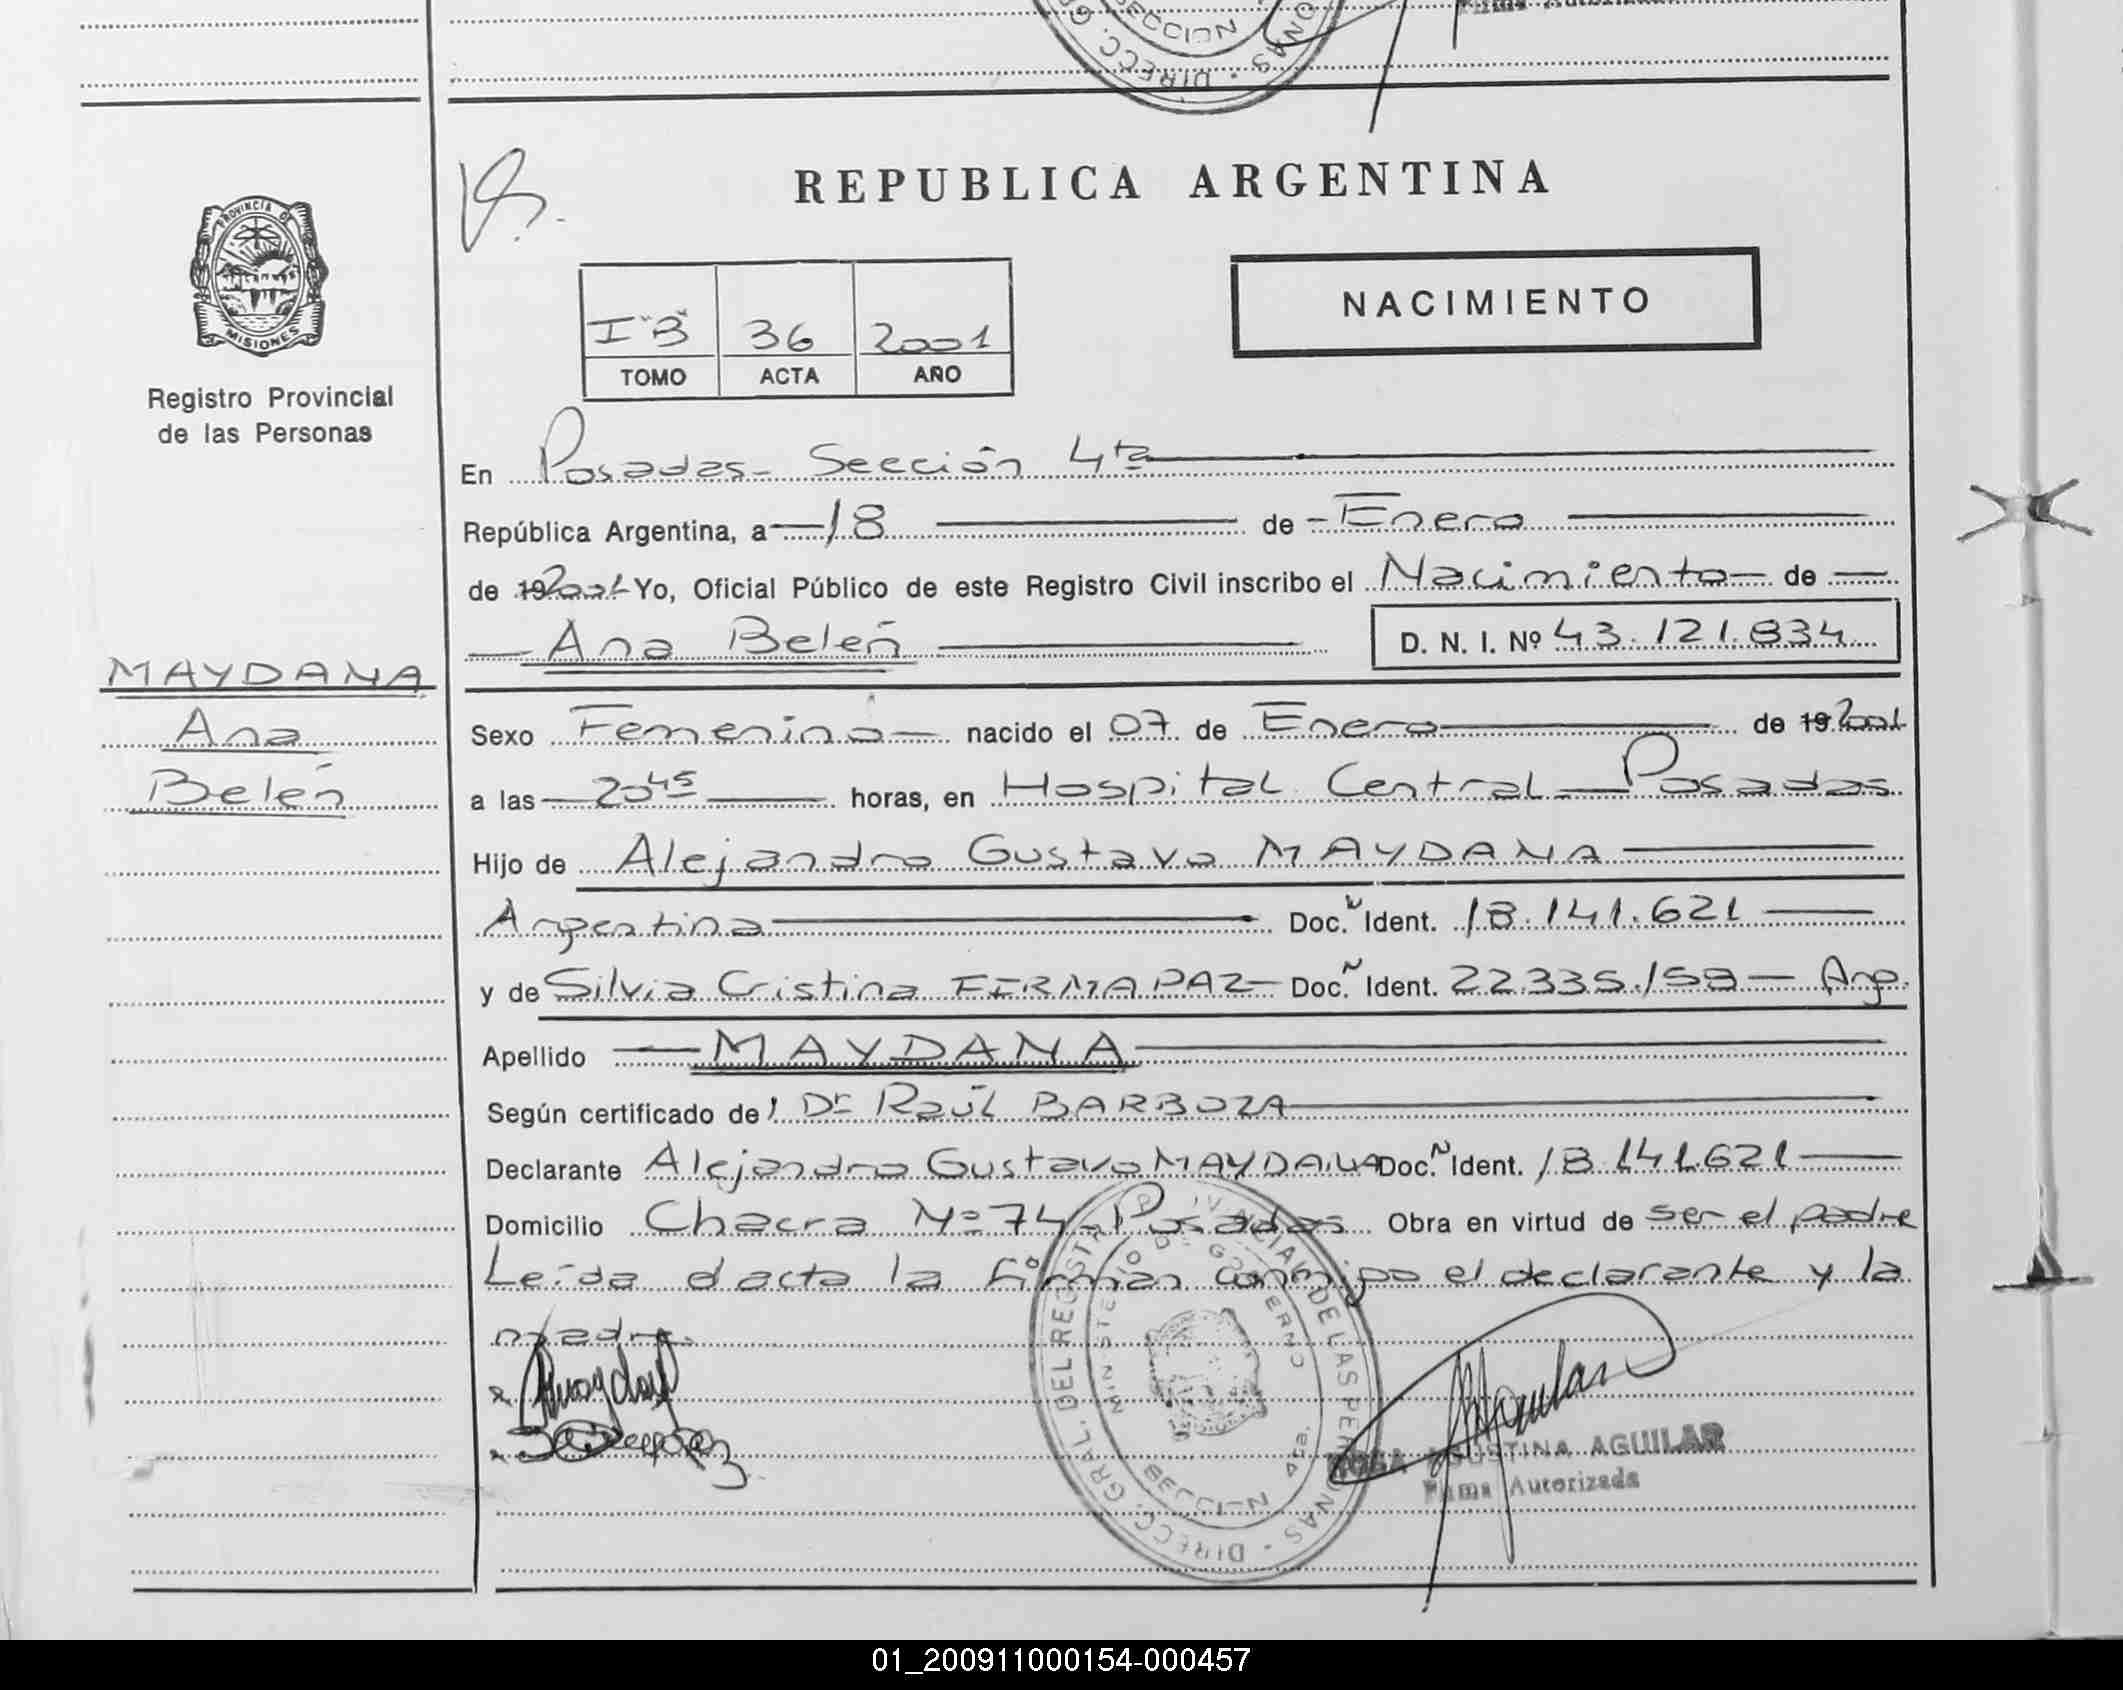 SECCION
DIRECC. G
ONAS
Firma Autorizada
PROVINCIA D
MISIONES
Registro Provincial
de las Personas
MAYDANA
Ana
Belén
REPUBLICA ARGENTINA
NACIMIENTO
I "B" 36 2001
TOMO ACTA AÑO
En Posadas - Sección 4ta
República Argentina, a 18 de Enero
de 19 2001 Yo, Oficial Público de este Registro Civil inscribo el Nacimiento de
Ana Belén D. N. I. Nº 43.121.834
Sexo Femenino nacido el 07 de Enero de 19 2001
a las 20 45 horas, en Hospital Central - Posadas
Hijo de Alejandro Gustavo MAYDANA
Argentina Doc. N Ident. 18.141.621
y de Silvia Cristina FIRMAPAZ - Doc. N Ident. 22.335.158 - Arg.
Apellido MAYDANA
Según certificado de Dr Raúl BARBOZA
Declarante Alejandro Gustavo MAYDANA Doc. N Ident. 18.141.621
Domicilio Chacra Nº 74 - Posadas Obra en virtud de ser el padre
Leída el acta la firman conmigo el declarante y la
madre.
DIRECC. GRAL. DEL REGISTR P IV NCIAL DE LAS PERSONAS
MINISTERIO DE GOBIERNO
SECCION 4ta.
AGUSTINA AGUILAR
Firma Autorizada
01_200911000154-000457